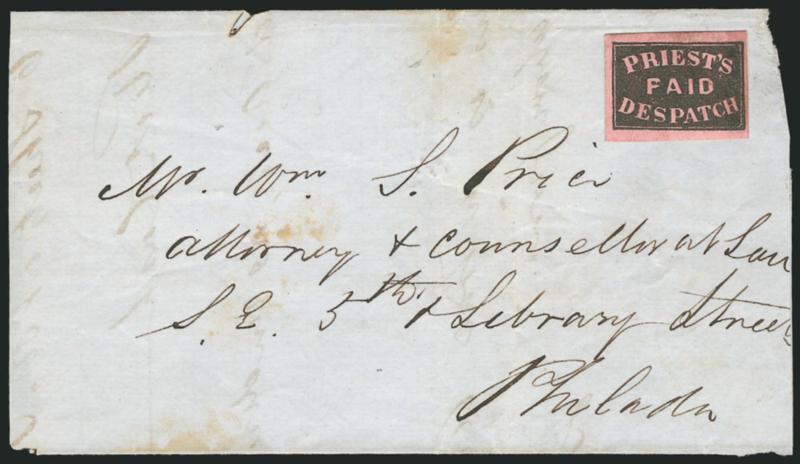 PRIEST'S
PAID
DESPATCH
Mr. Wm S. Price
Attorney & Counsellor at Law
S. E. 5th & Library Street
Philada